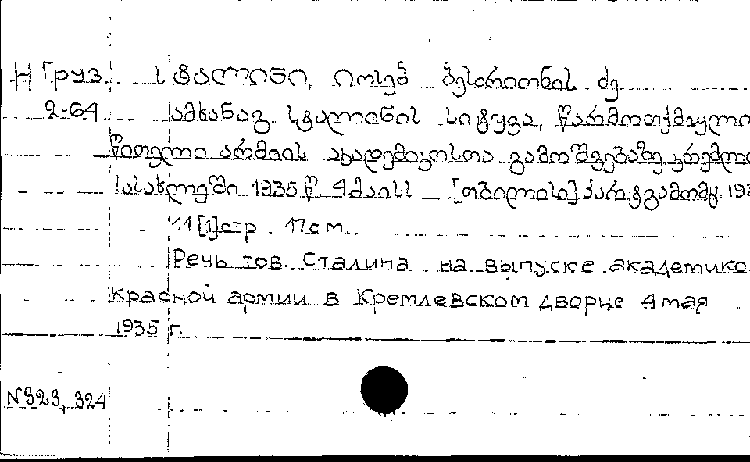 Н Груз. სტალინი, იოსებ ბესარიონის ძე
2-64 ამხანაგ სტალინის სიტყვა, წარმოთქმული
წითელი არმიის აკადემიკოსთა გამოშვებაზე კრემლის
სასახლეში 1935 წ. 4 მაისს [თბილისი] პარტგამომც. 193
11 [1] стр. 17 см.
Речь тов. Сталина на выпуске академико
Красной армии в Кремлевском дворце 4 мая
1935 г.
N 323, 324